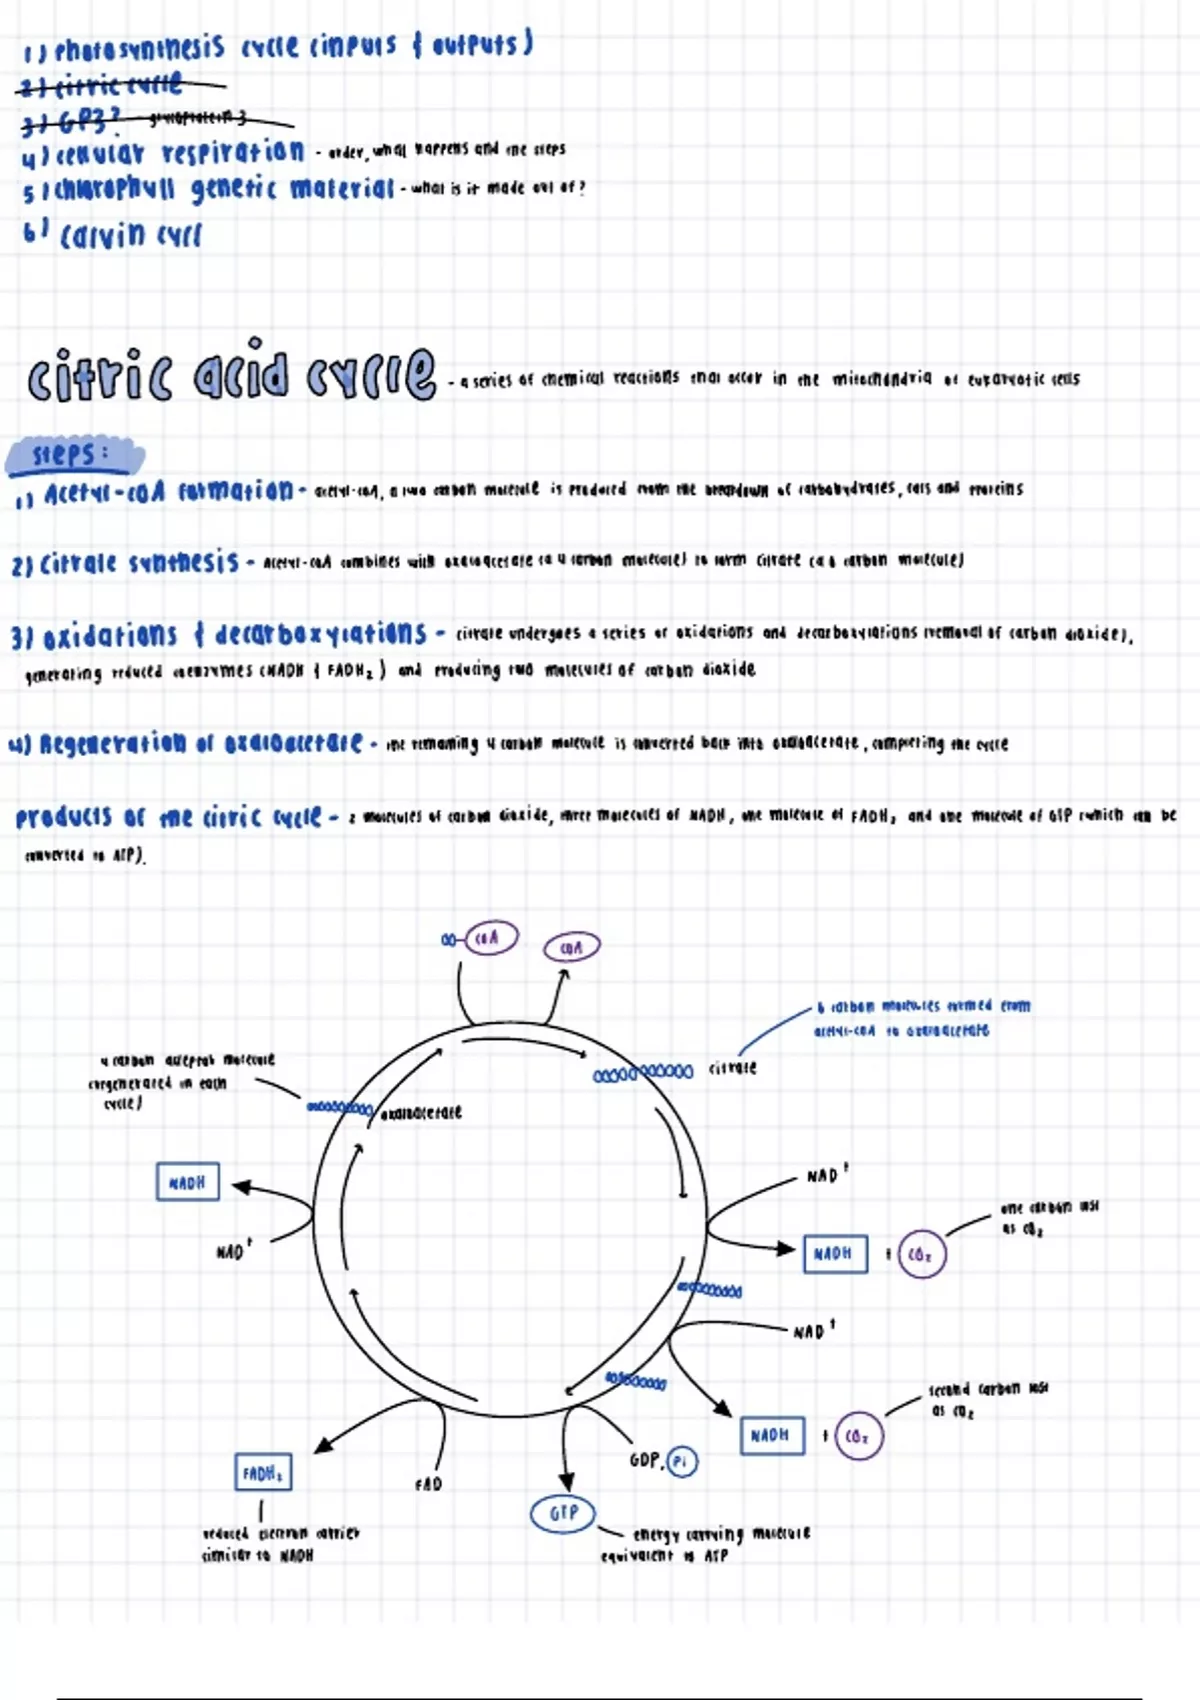 1) Photosynthesis cycle (inputs & outputs)
2) citric cycle
3) GP3? - glycoprotein 3
4) cellular respiration - order, what happens and the steps
5) chlorophyll genetic material - what is it made out of?
6) calvin cycl
citric acid cycle - a series of chemical reactions that occur in the mitochondria of eukaryotic cells
steps:
1) Acetyl-coA formation - acetyl-coA, a two carbon molecule is produced from the breakdown of carbohydrates, fats and proteins
2) Citrate synthesis - Acetyl-coA combines with oxaloacetate (a 4 carbon molecule) to form citrate (a 6 carbon molecule)
3) oxidations & decarboxylations - citrate undergoes a series of oxidations and decarboxylations (removal of carbon dioxide),
generating reduced coenzymes (NADH & FADH₂) and producing two molecules of carbon dioxide
4) Regeneration of oxaloacetate - the remaining 4 carbon molecule is converted back into oxaloacetate, completing the cycle
products of the citric cycle - 2 molecules of carbon dioxide, three molecules of NADH, one molecule of FADH₂ and one molecule of GTP (which can be
converted to ATP).
COA
COA
6 carbon molecules formed from
acetyl-coA to oxaloacetate
citrate
4 carbon acceptor molecule
(regenerated in each
cycle)
oxaloacetate
NADH
NAD⁺
NAD⁺
NADH + CO₂
one carbon lost
as CO₂
NAD⁺
NADH + CO₂
second carbon lost
as CO₂
GDP, Pi
GTP
energy carrying molecule
equivalent to ATP
FAD
FADH₂
reduced electron carrier
similar to NADH